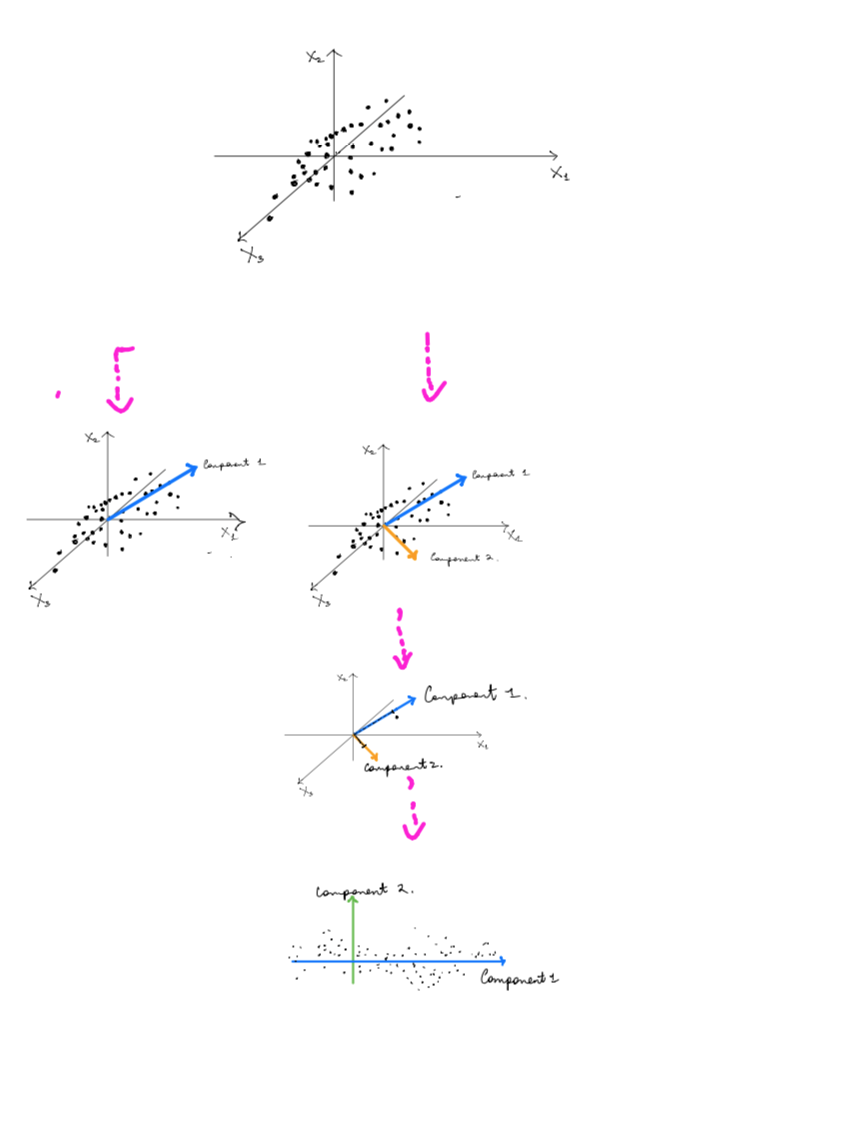 X2
X1
X3
X2
Component 1
X1
X3
X2
Component 1
X1
Component 2.
X3
X2
Component 1.
X1
Component 2.
X3
Component 2.
Component 1